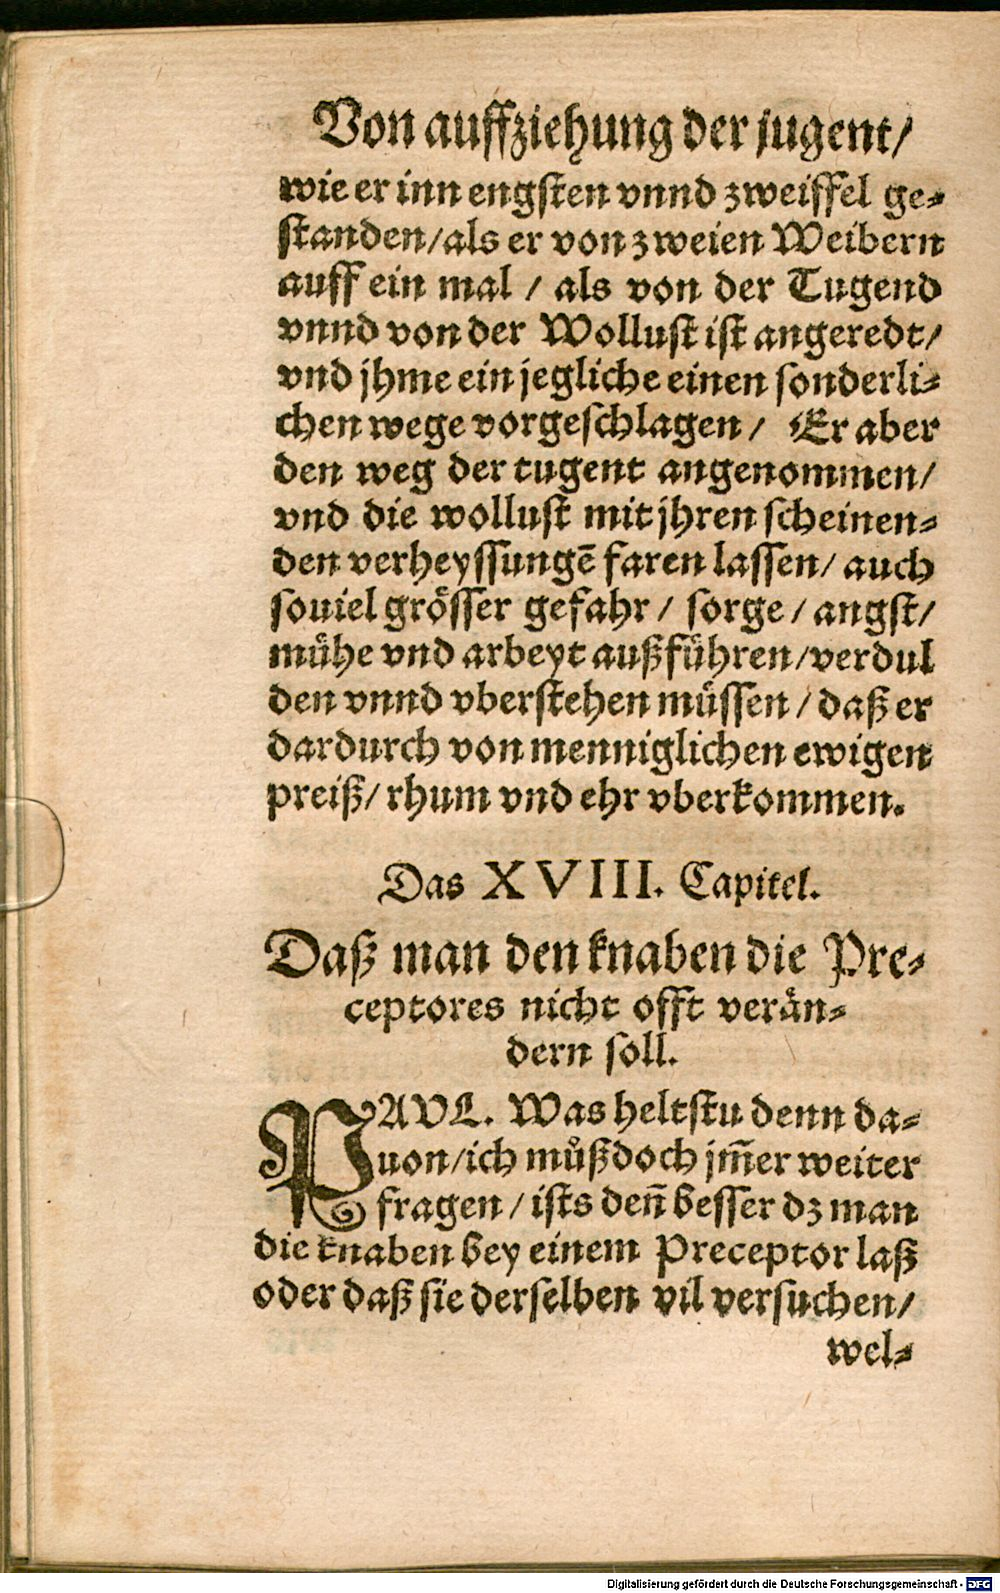 Von auffziehung der jugent/
wie er inn engsten vnnd zweiffel ge-
standen/als er von zweien Weibern
auff ein mal / als von der Tugend
vnnd von der Wollust ist angeredt/
vnd jhme ein jegliche einen sonderli-
chen wege vorgeschlagen / Er aber
den weg der tugent angenommen/
vnd die wollust mit jhren scheinen-
den verheyssungē faren lassen/ auch
souiel grösser gefahr / sorge / angst/
mühe vnd arbeyt außführen/verdul
den vnnd vberstehen müssen / daß er
dardurch von menniglichen ewigen
preiß/ rhum vnd ehr vberkommen.
Das XVIII. Capitel.
Daß man den knaben die Pre-
ceptores nicht offt verän-
dern soll.
PAVL. Was heltstu denn da-
uon/ich můß doch jm̄er weiter
fragen / ists den̄ besser dz man
die knaben bey einem Preceptor laß
oder daß sie derselben vil versuchen/
wel-
Digitalisierung gefördert durch die Deutsche Forschungsgemeinschaft - DFG